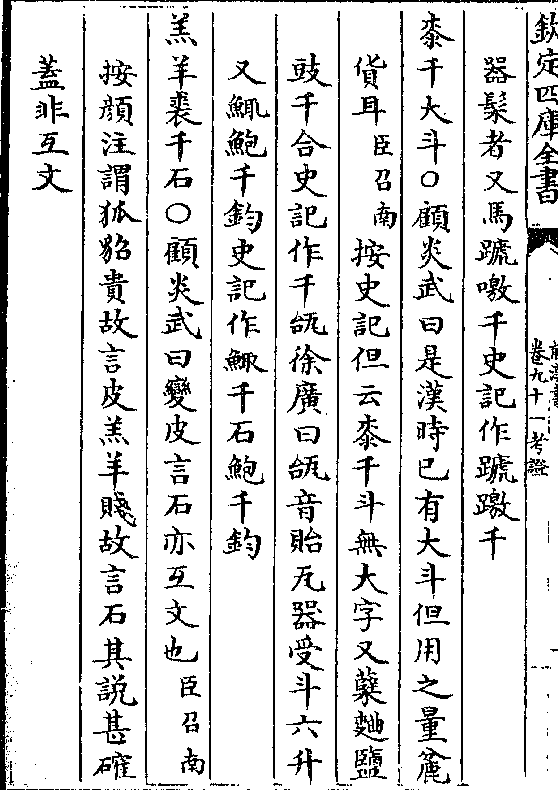 欽定四庫全書
前漢書卷九十一考證
器髹者又馬蹏噭千史記作蹏躈千
桼千大斗○顧炎武曰是漢時已有大斗但用之量麄
貨耳臣召南按史記但云桼千斗無大字又糱麯鹽
豉千合史記作千瓵徐廣曰瓵音貽瓦器受斗六升
又鮿鮑千鈞史記作鯫千石鮑千鈞
羔羊裘千石○顧炎武曰變皮言石亦互文也臣召南
按顔注謂狐貂貴故言皮羔羊賤故言石其説甚確
蓋非互文